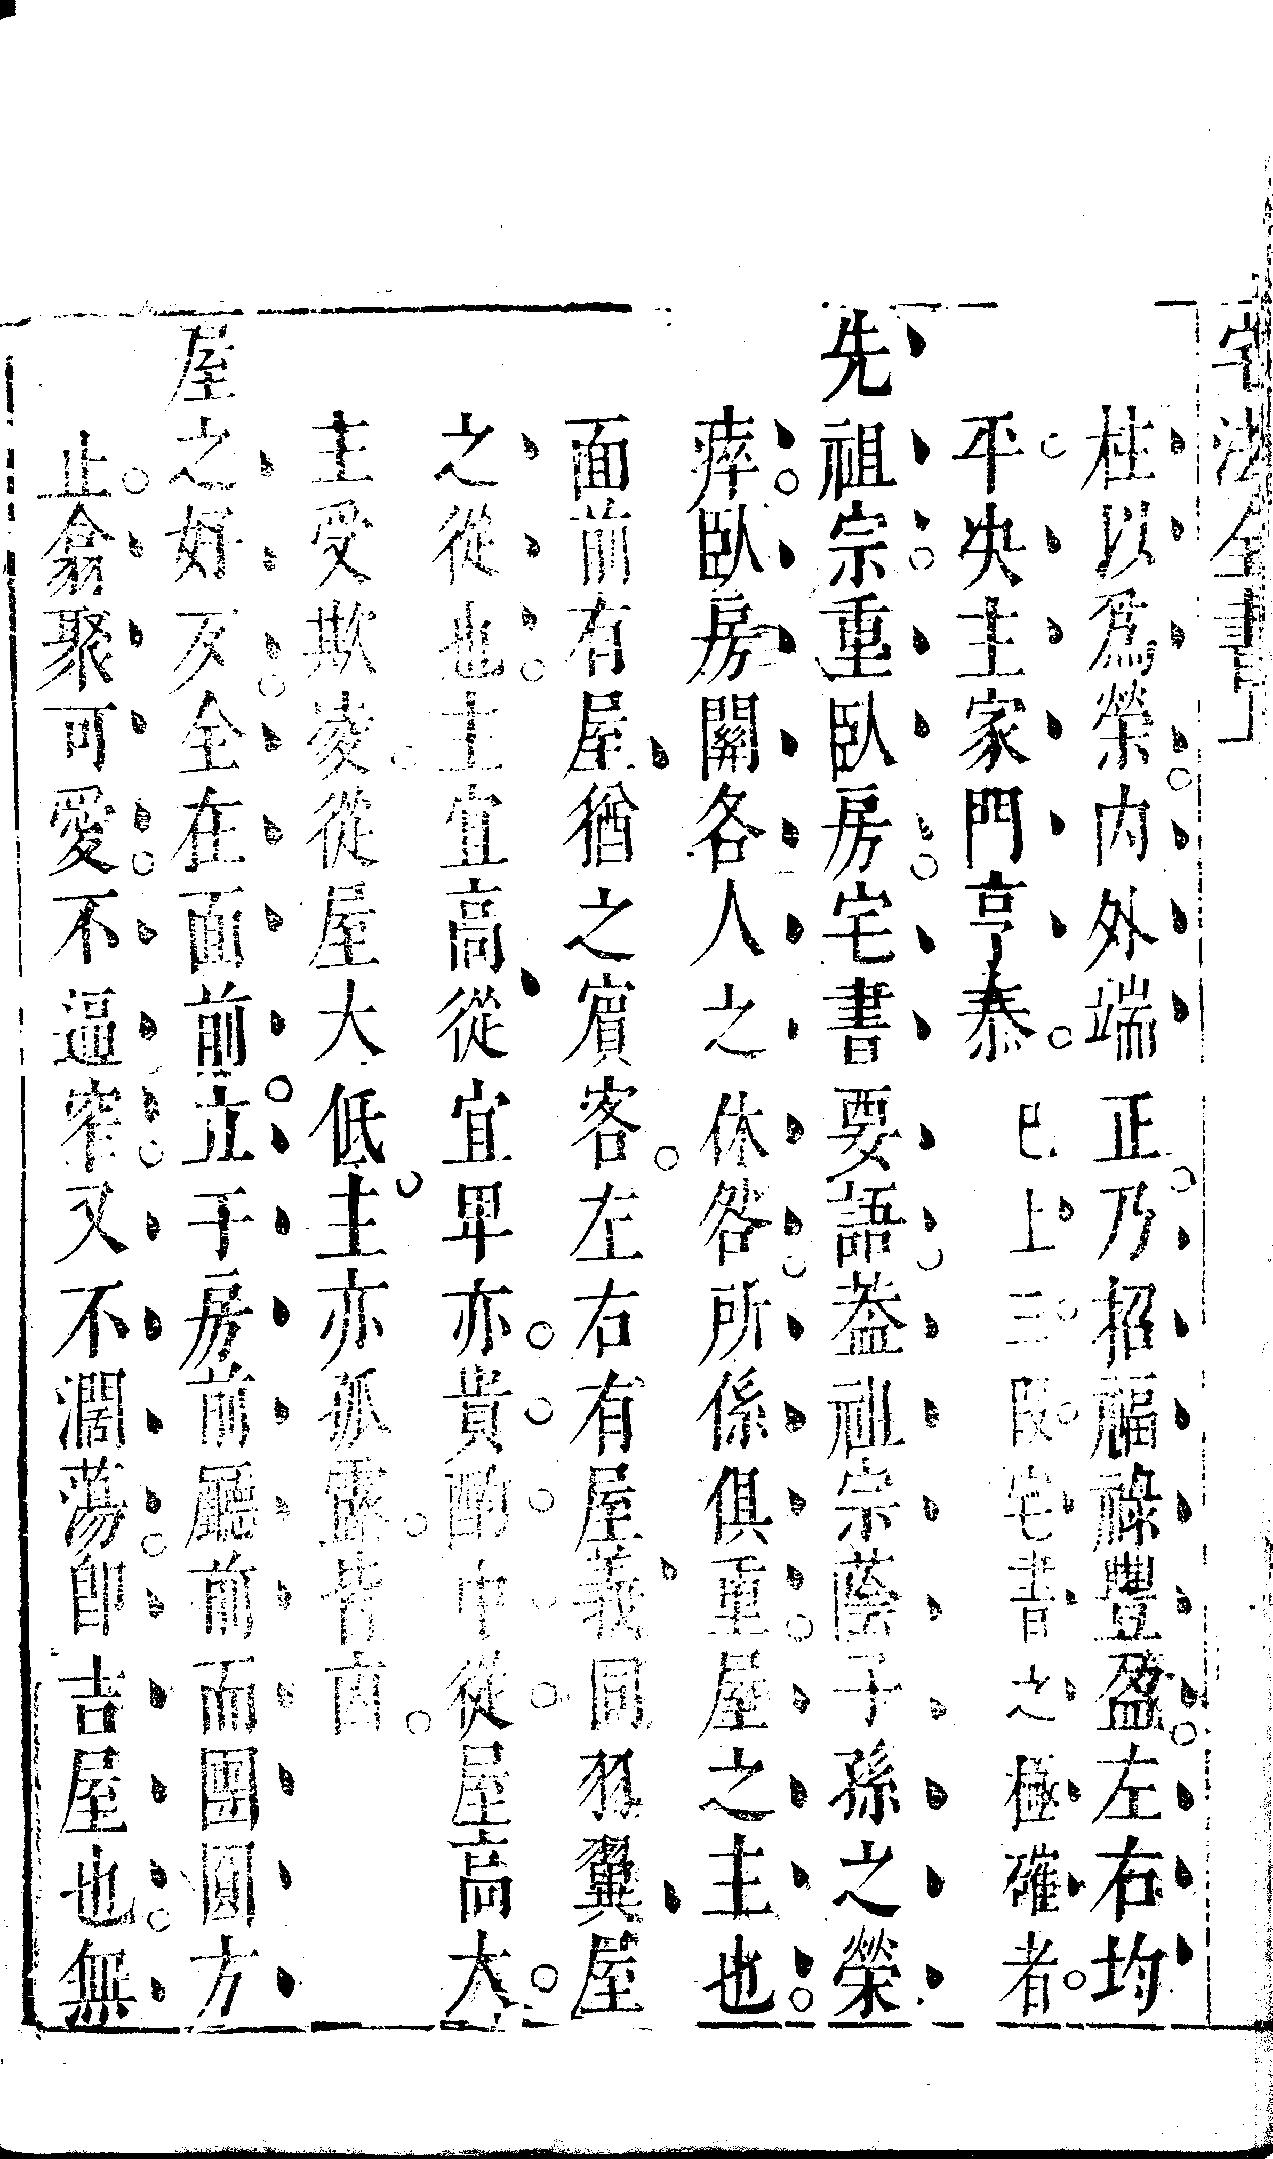 宅法全書
柱以爲榮內外端正乃招福祿豐盈左右均
平央主家門亨泰 已上三段宅書之極確者
先祖宗重臥房宅書要語葢祖宗蔭子孫之榮
瘁臥房關各人之休咎所係俱重屋之主也
面前有屋猶之賓客左右有屋義同羽翼屋
之從也主宜高從宜卑亦貴酌中從屋高大
主受欺凌從屋大低主亦孤露皆凶
屋之好歹全在面前立于房前廳前而團圓方
止翕聚可愛不逼窄又不濶蕩卽吉屋也無